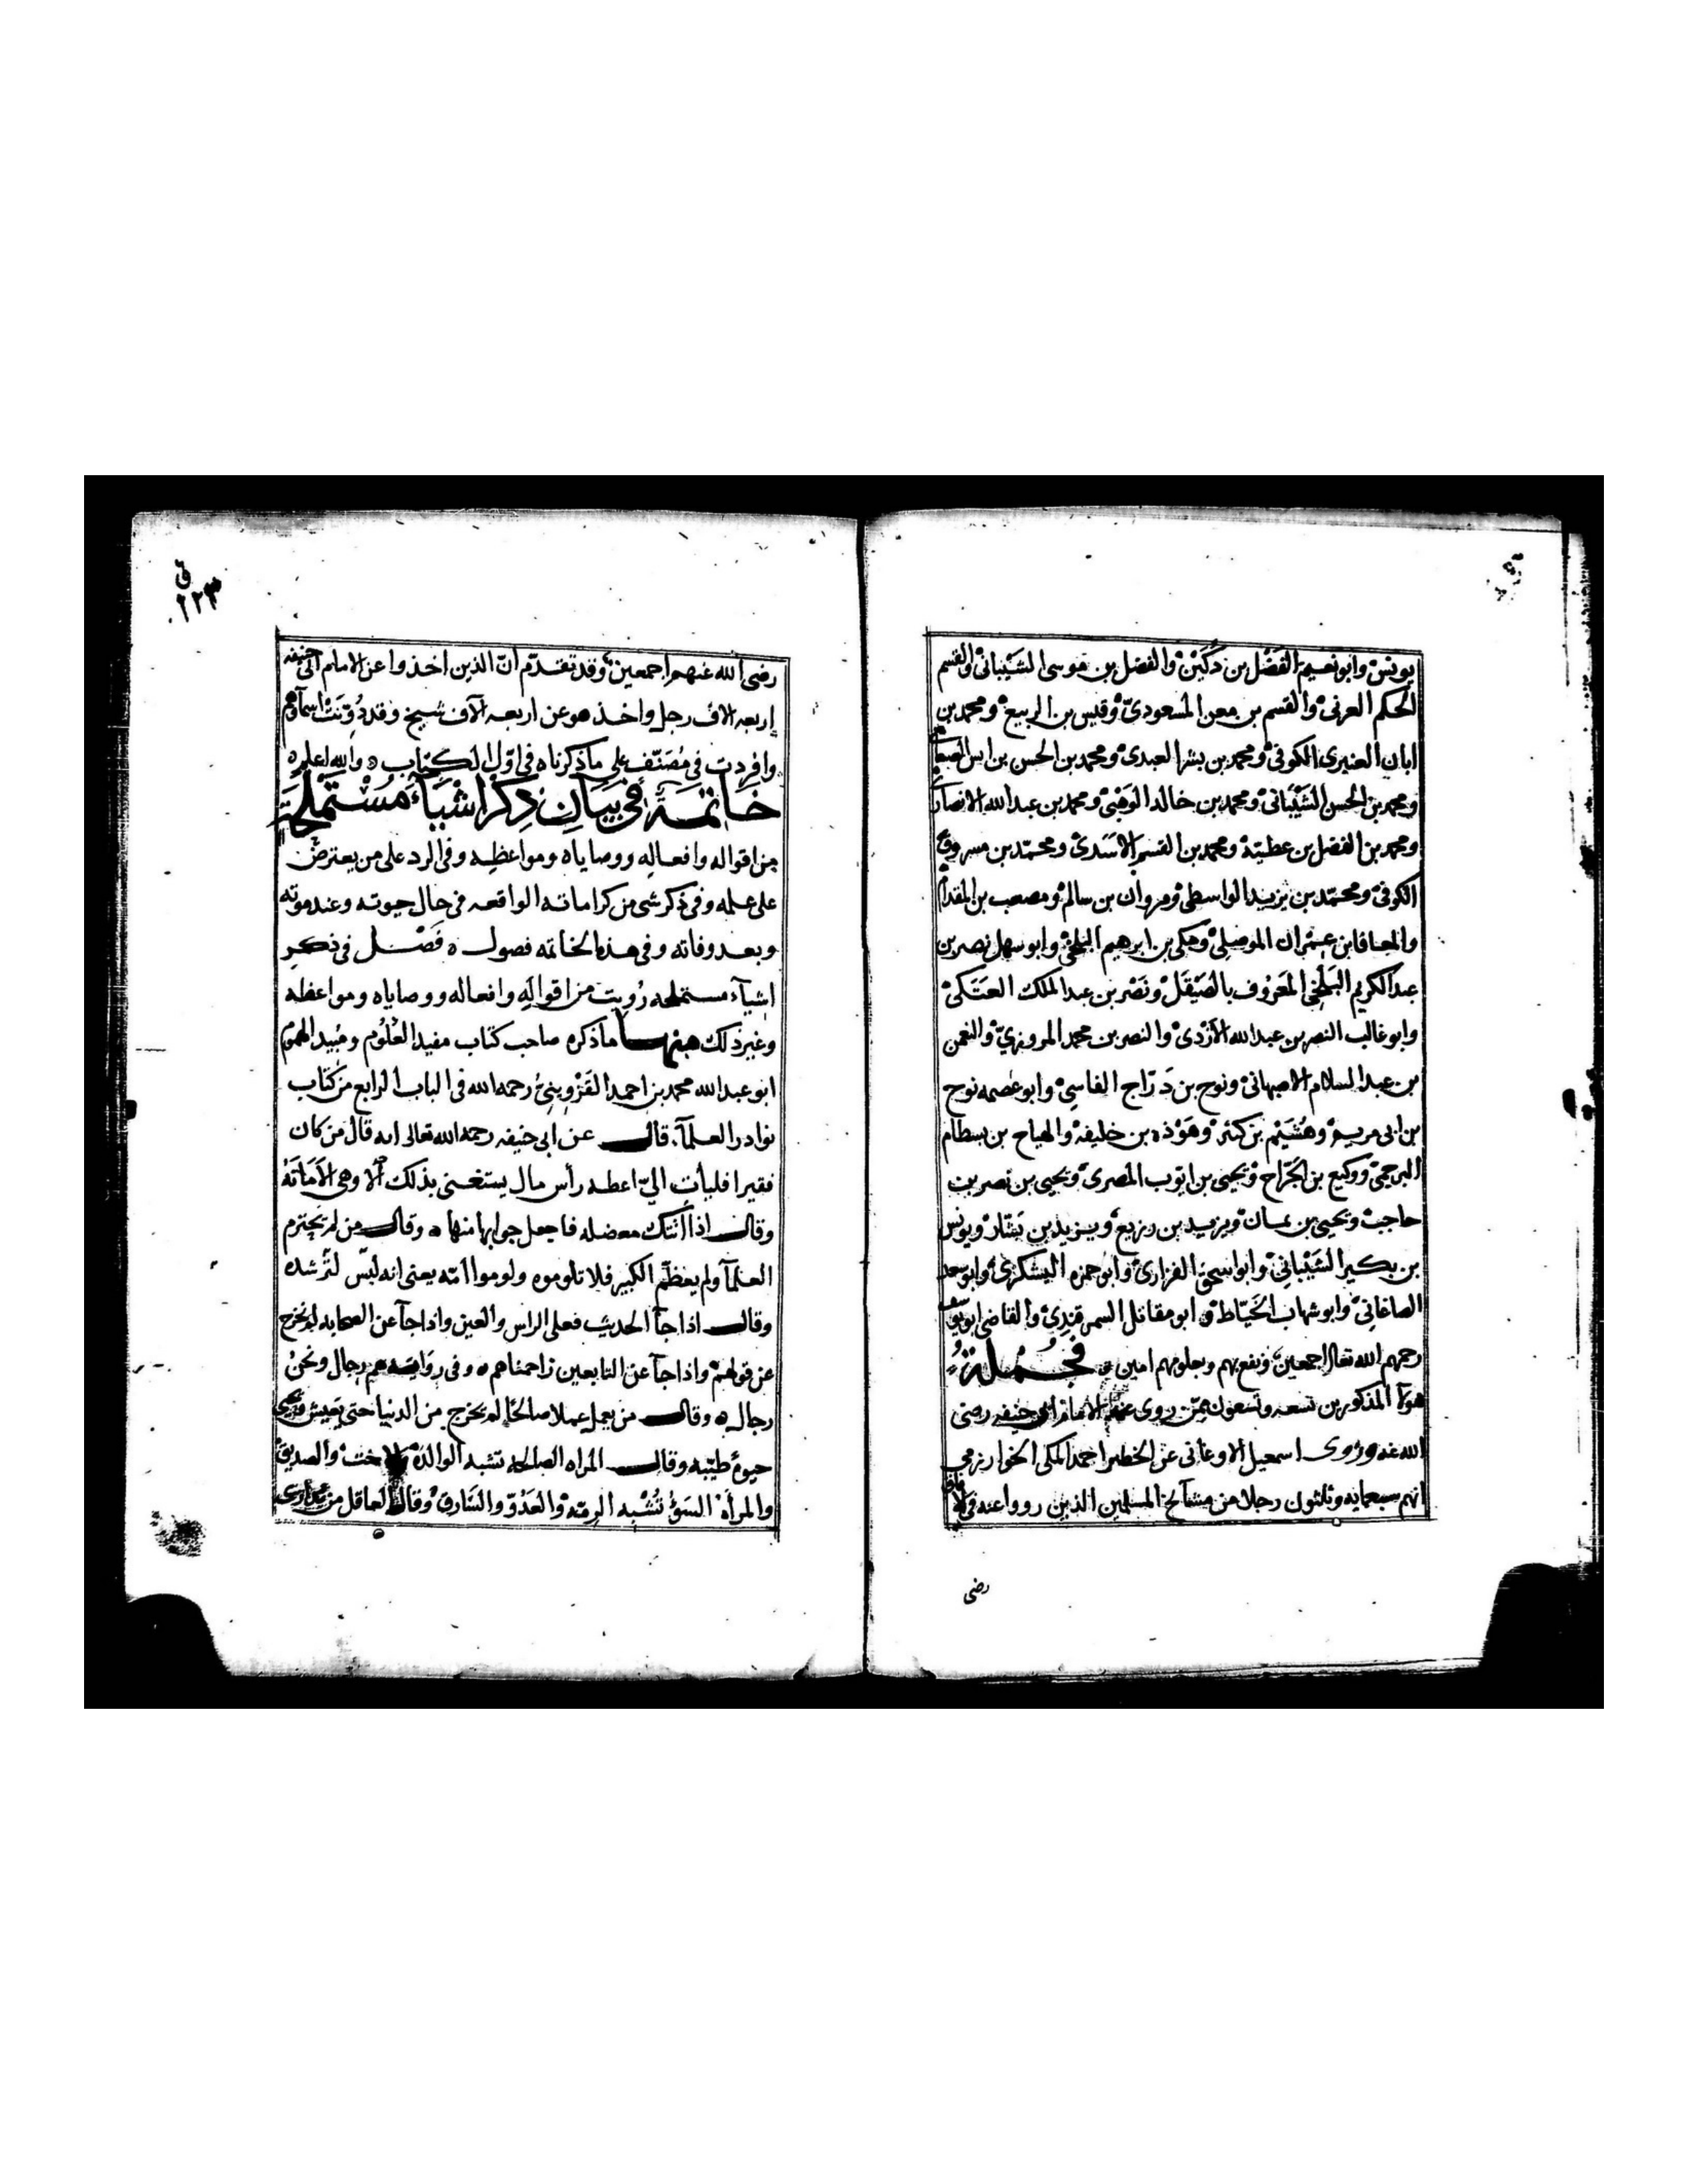 يونس وابو نعيم الفضل بن دكين والفضل بن موسى الشيبانى والقسم
الحكم العرنى والقسم بن معن المسعودى وقيس بن الربيع ومحمد بن
ابان العنبرى الكوفى ومحمد بن بشر العبدى ومحمد بن الحسن بن
ومحمد بن الحسن الشيبانى ومحمد بن خالد الوهبى ومحمد بن عبد الله الانصارى
ومحمد بن الفضل بن عطية ومحمد بن القسم الاسدى ومحمد بن مسروق
الكوفى ومحمد بن يزيد الواسطى ومروان بن سالم ومصعب بن المقدام
والمعافا بن عمران الموصلى ومكى بن ابرهيم البلخى وابو سهل نصر بن
عبد الكريم البلخى المعروف بالصيقل ونصر بن عبد الملك العتكى
وابو غالب النصر بن عبد الله الازدى والنصر بن محمد المروزى والنعمن
بن عبد السلام الاصبهانى ونوح بن دراج الفاسى وابو عصمه نوح
بن ابى مريم وهشيم بن كثير وهوذه بن خليفه والهياح بن بسطام
البرجمى ووكيع بن الجراح ويحيى بن ايوب المصرى ويحيى بن نصر بن
حاجب ويحيى بن يمان ويزيد بن زريع ويزيد بن ويونس
بن بكير الشيبانى وابو اسحق الفزارى وابو حمزه اليشكرى وابو سعد
الصاغانى وابو شهاب الحناط وابو مقاتل السمرقندى والقاضى ابو يوسف
رحمهم الله تعالى اجمعين ونفع بهم وبعلومهم امين فجملة
هولآ المذكورين تسعه وتسعون ممن روى عن الامام ابى حنيفه رضى
الله عنه وروى اسمعيل الاوغانى عن الخطير احمد المكى الخوارزمى
انهم سبعمايه وثلثون رجلا من مشايخ المسلمين الذين رووا عنه فى
رضى
ق
٢٢٣
رضى الله عنهم اجمعين وقد تقدم ان الذين اخذوا عن الامام ابى حنيفه
اربعه الاف رجل واخذ هو عن اربعه الآف شيخ وقد دونت اسماوهم
وافردت فى مصنف على ما ذكرناه فى اول الكتاب ه والله اعلم ه
خاتمة فى بيان ذكر اشيآء مستملحة
من اقواله وافعاله ووصاياه ومواعظه وفى الرد على من يعترض
على علمه وفى ذكر شى من كراماته الواقعه فى حال حيوته وعند موته
وبعد وفاته وفى هذه الخاتمه فصول ه فصل فى ذكر
اشيآء مستملحه رويت من اقواله وافعاله ووصاياه ومواعظه
وغير ذلك منها ما ذكره صاحب كتاب مفيد العلوم ومبيد الهموم
ابو عبد الله محمد بن احمد القزوينى رحمه الله فى الباب الرابع من كتاب
نوادر العلمآ قال عن ابى حنيفه رحمه الله تعالى انه قال من كان
فقيرا فليأت الىّ اعطه رأس مال يستغنى بذلك آلا وهى الامانة
وقال اذا اتتك معضله فاجعل جوابها منها ه وقال من لم يحترم
العلمآ ولم يعظم الكبير فلا تلوموه ولوموا امّه يعنى انه ليس لرشده
وقال اذا جآ الحديث فعلى الراس والعين واذا جآ عن الصحابه لم نخرج
عن قولهم واذا جآ عن التابعين زاحمناهم ه وفى روايه هم رجال ونحن
رجال ه وقال من يعمل عملا صالحا لم يخرج من الدنيا حتى يعيش
حيوة طيبه وقال المراه الصالحه تشبه الوالدة والاخت والصديق
والمرأة السوّ تشبه الرمّه والعدوّ والسارق وقال العاقل من